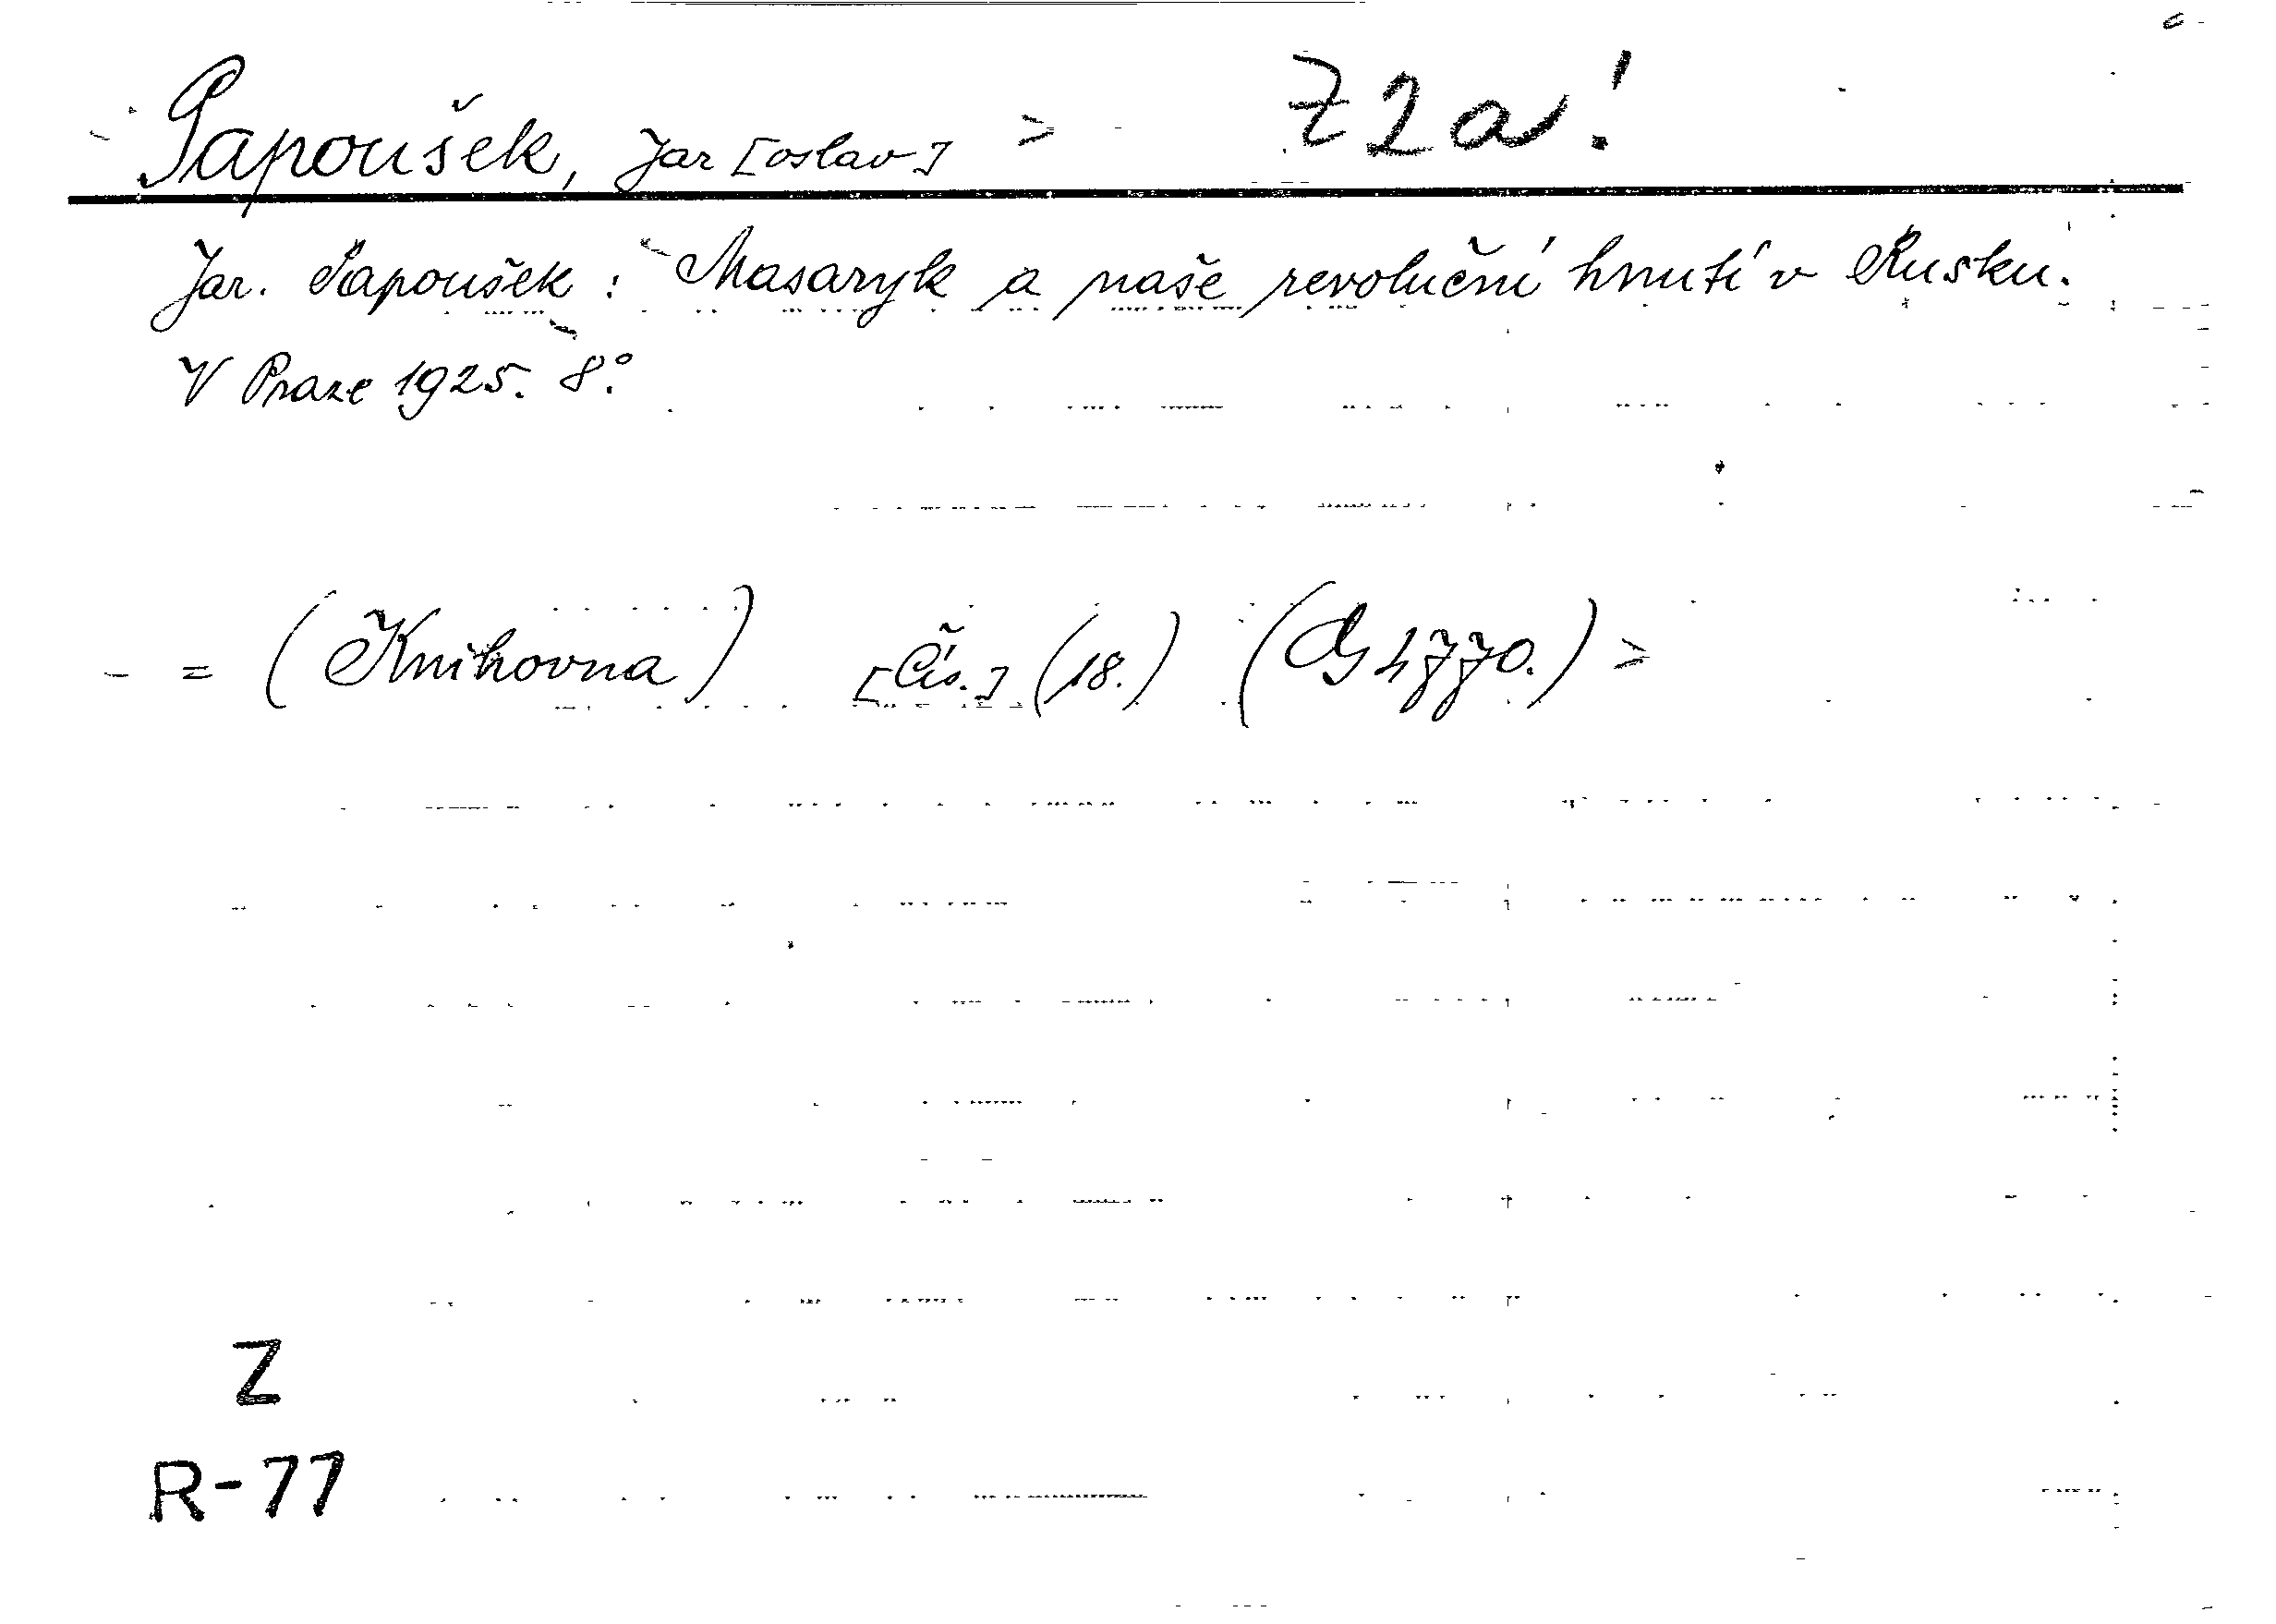 Papoušek, Jar[oslav] > Z2a!
Jar. Papoušek: Masaryk a naše revoluční hnutí v Rusku.
V Praze 1925. 8°.
= (Knihovna) [Čís.] (18.) (4770.) >
Z
R-77